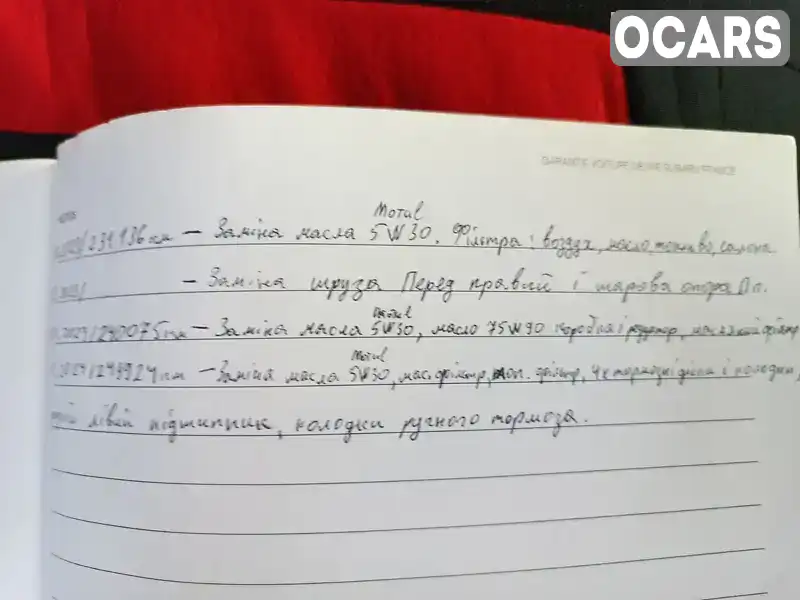 OCARS
GARANTIE VOITURE NEUVE SUBARU FRANCE
NOTES
Motul
/231136км – Заміна масла 5W30. Фільтра: воздух, масло, топливо, салона.
– Заміна шруза Перед правий і шарова опора Пп.
Motul
/240075км – Заміна масла 5W30, масло 75W90 коробка і редуктор,
Motul
км – Заміна масла 5W30, мас. фільтр, топ. фільтр, 4х тормозні діски і колодки,
лівий підшипник, колодки ручного тормоза.